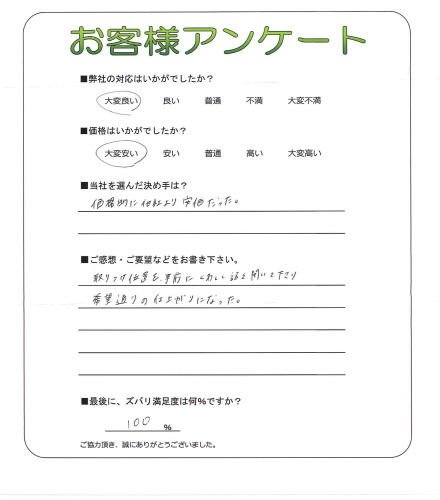 お客様アンケート
■弊社の対応はいかがでしたか？
大変良い 良い 普通 不満 大変不満
■価格はいかがでしたか？
大変安い 安い 普通 高い 大変高い
■当社を選んだ決め手は？
価格的に他社より安価だった。
■ご感想・ご要望などをお書き下さい。
取りつけ位置を事前にくわしく話を聞いて下さり
希望通りの仕上がりになった。
■最後に、ズバリ満足度は何％ですか？
100 ％
ご協力頂き、誠にありがとうございました。